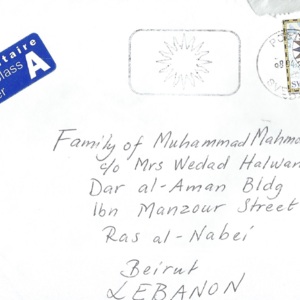 A
Family of Muhammad Mahmo
c/o Mrs Wedad Halwan
Dar al-Aman Bldg
Ibn Manzour Street
Ras al-Nabei
Beirut
LEBANON